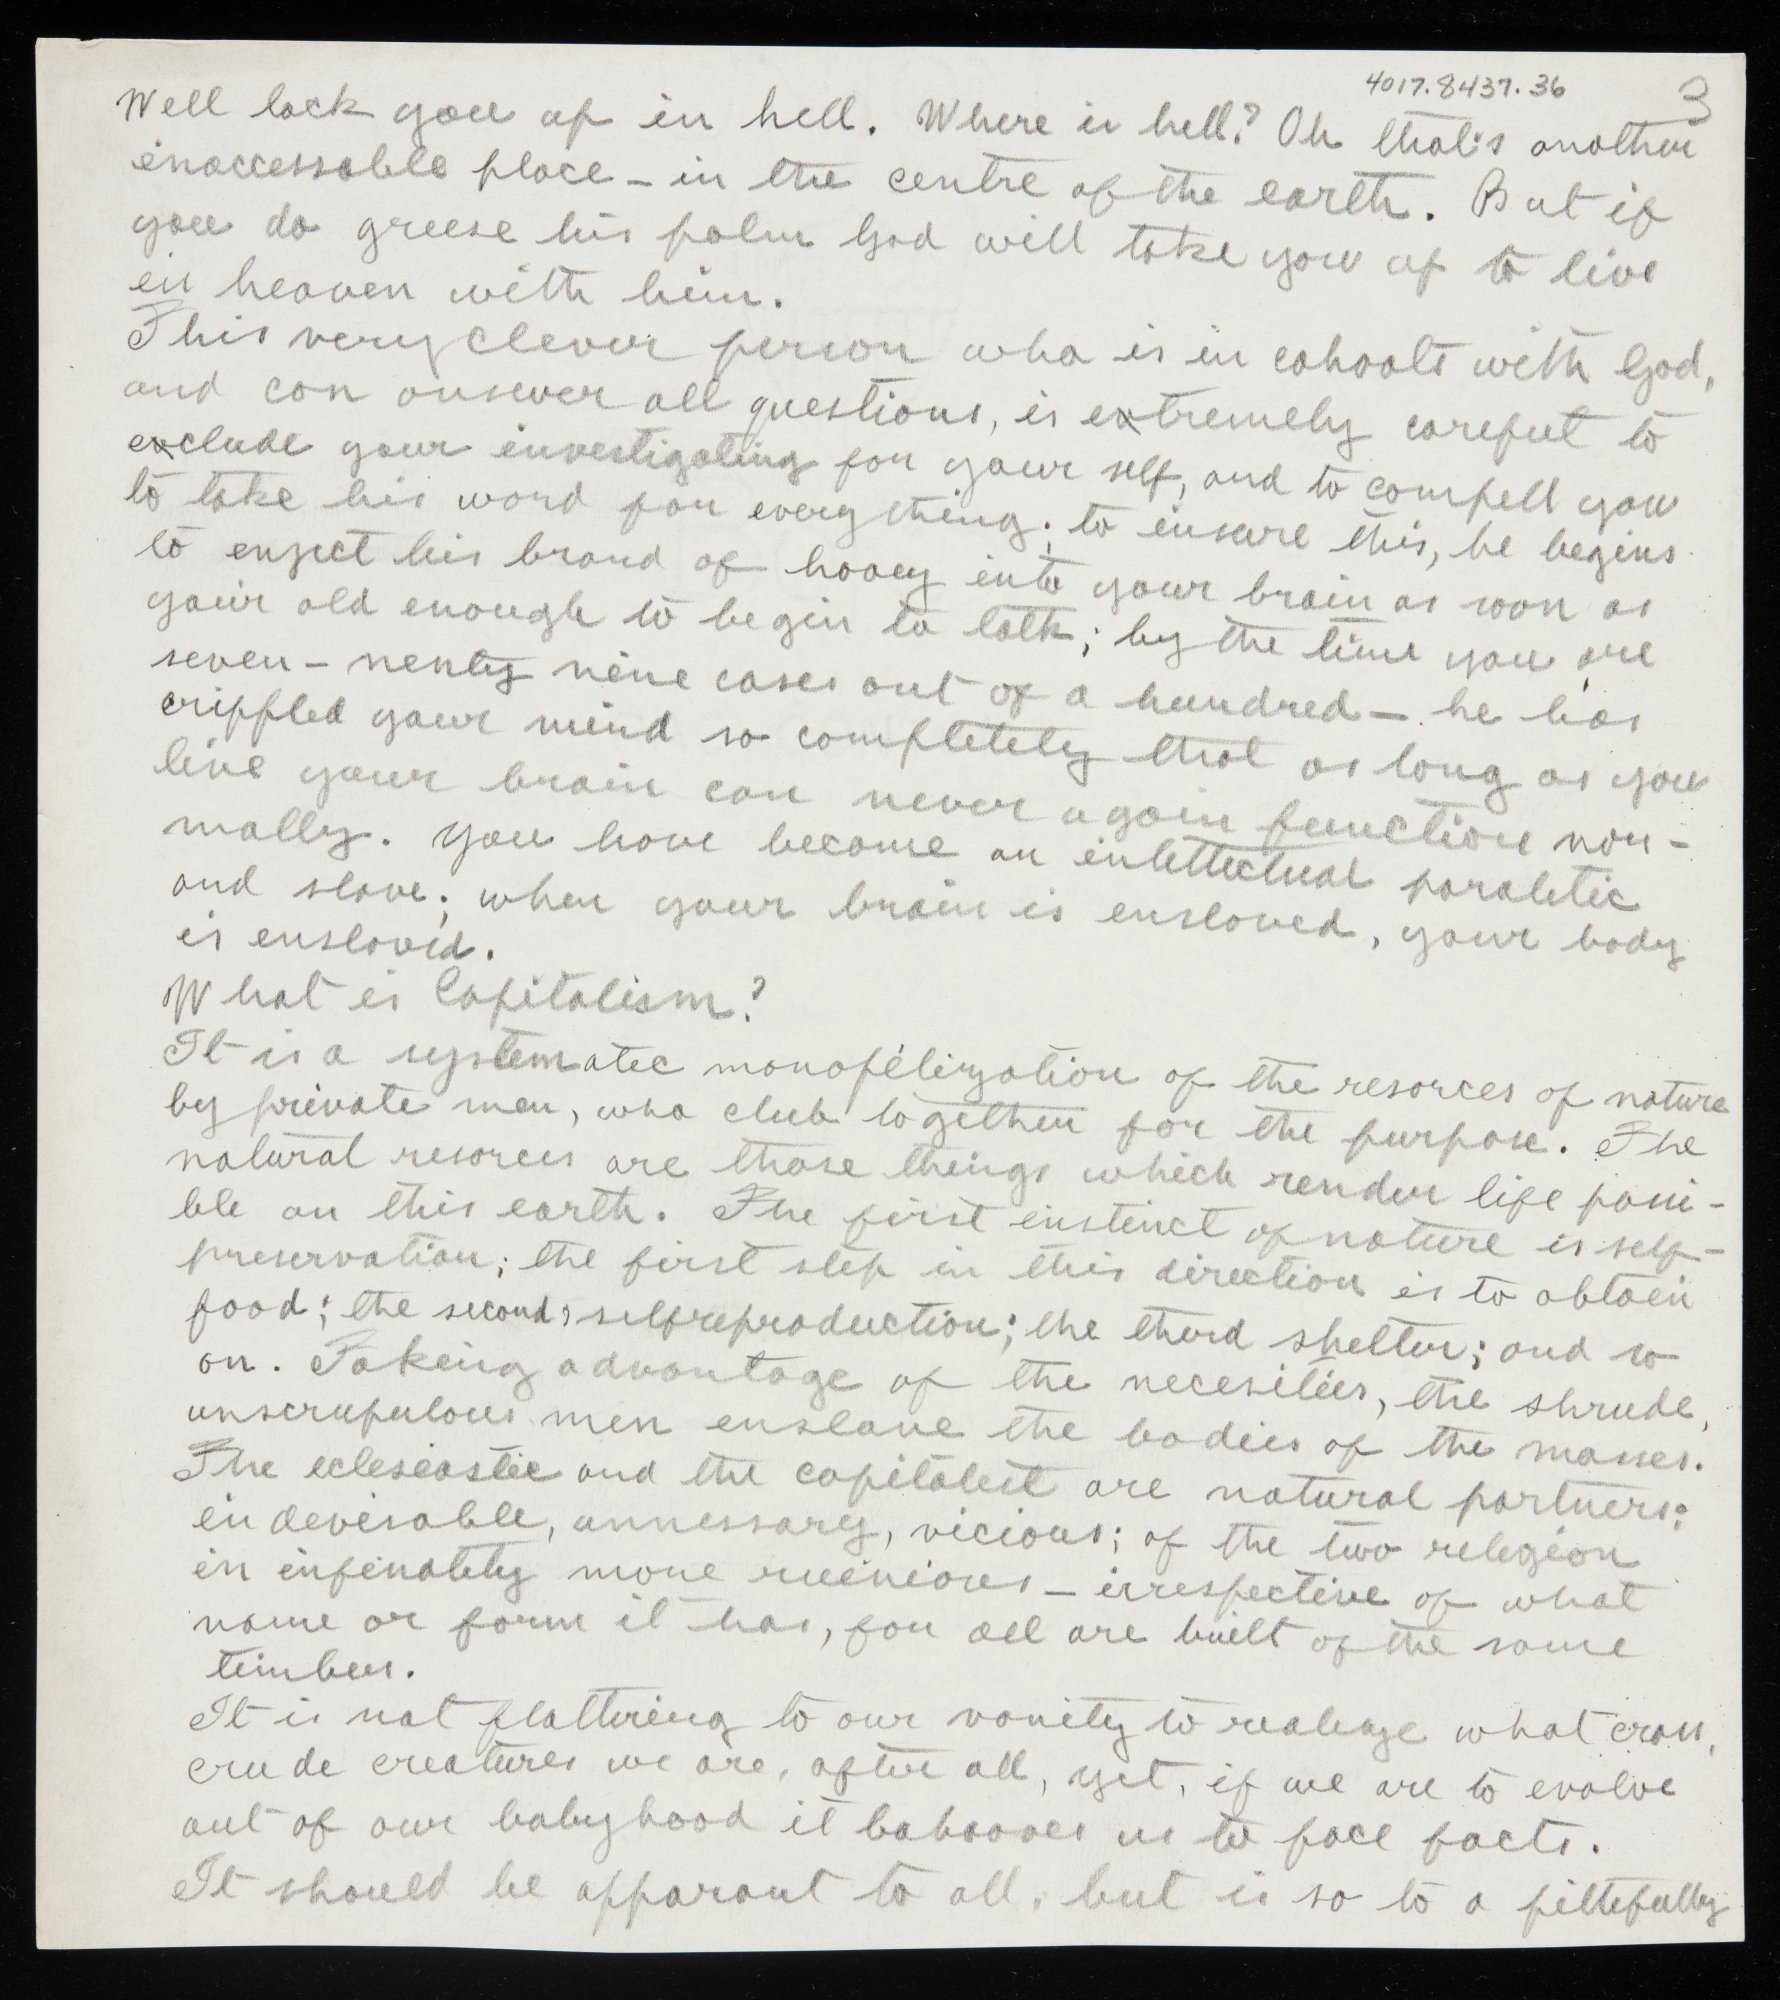 4017.8437.36
3
Well lock you up in hell. Where is hell? Oh that's another
inaccessable place - in the centre of the earth. But if
you do greese his palm God will take you up to live
in heaven with him.
This very clever person who is in cahoots with God,
and can answer all questions, is extremely careful to
exclude your investigating for your self, and to compell you
to take his word for everything; to insure this, he begins
to enject his brand of hooey into your brain as soon as
your old enough to begin to talk; by the time you are
seven - nenty nine cases out of a hundred - he has
crippled your mind so completely that as long as you
live your brain can never again function nor-
mally. You have become an intellectual paraletic
and slave; when your brain is enslaved, your body
is enslaved.
What is Capitalism?
It is a systematic monopilization of the resorces of nature
by private men, who club together for the purpose. The
natural resorces are those things which render life possi-
ble on this earth. The first instinct of nature is self-
preservation; the first step in this direction is to obtain
food; the second, selfreproduction; the third shelter; and so
on. Taking advantage of the necesities, the shrude,
unscrupulous men enslave the bodies of the masses.
The eclesiastic and the capitalist are natural partners;
indevisable, unnessary, vicious; of the two religion
in infinately more ruinious - irrespective of what
name or form it has, for all are built of the same
timber.
It is not flattering to our vanity to realize what crass,
crude creatures we are, after all, yet, if we are to evolve
out of our babyhood it bahooves us to face facts.
It should be apparant to all, but is so to a pittifully